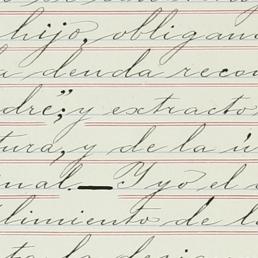 hijo, obligan
a deuda reco
dre"; y extracto
tura, y de la ú
nal. — Y yo el
limiento de l